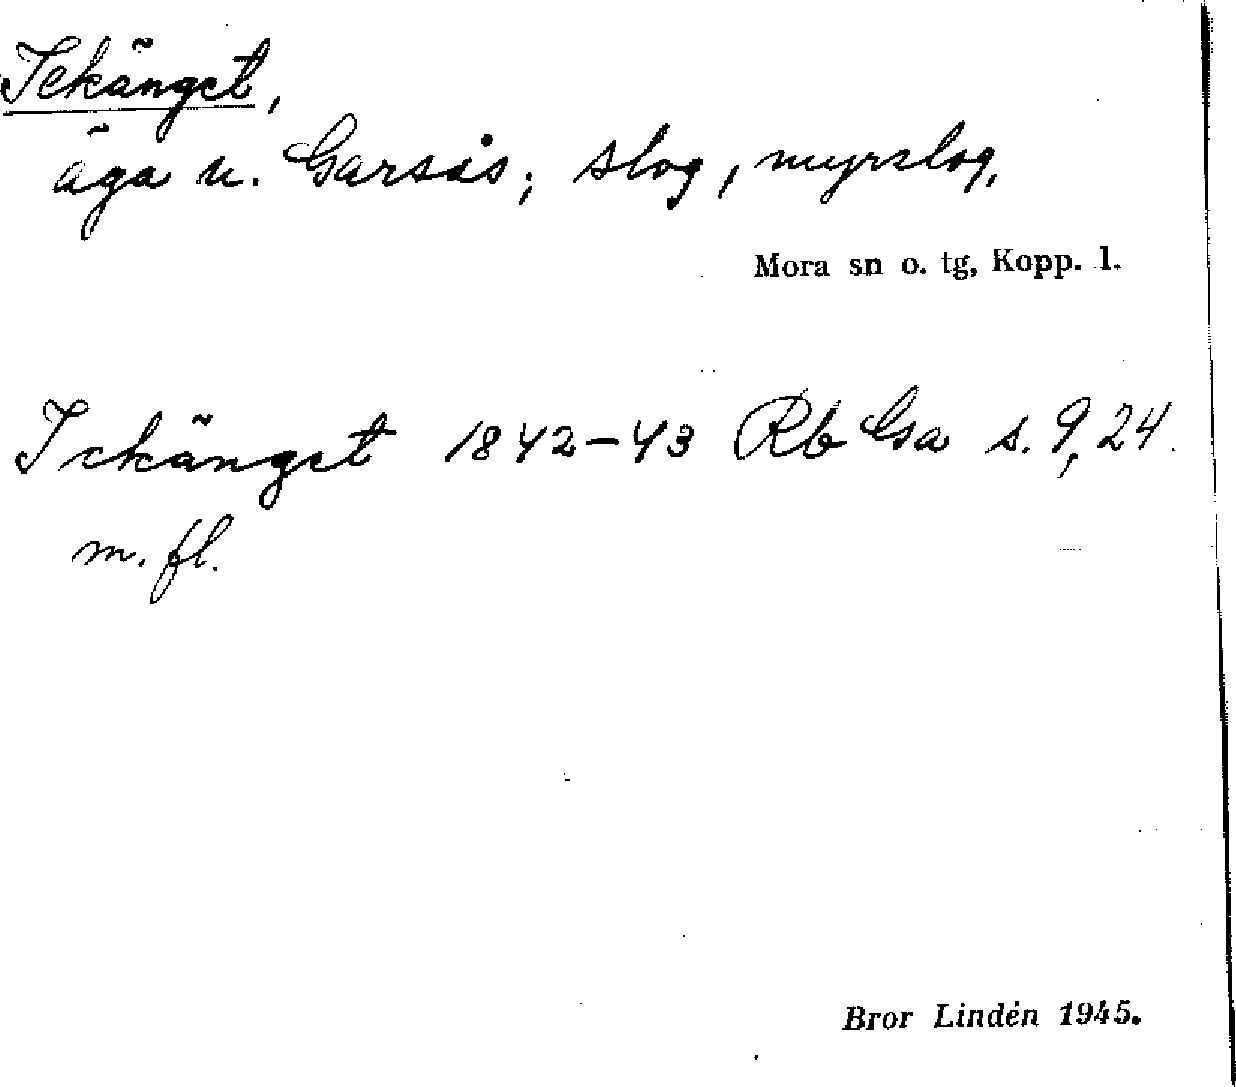 Ickänget,
äga u. Garsås; slog, myrslog.
Mora sn o. tg, Kopp. l.
Ickänget 1842-43 Rb Gsa s. 9, 24
m. fl.
Bror Lindén 1945.